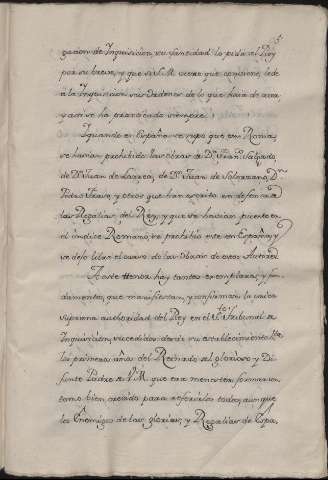 5
gacion de Inquisicion, su Santidad lo pida al Rey
por su breve, y que si S.M. viere que conviene, le dè
à la Inquisicion sus ordenes de lo que haia de hacer
y assi se ha practicado siempre.
Y quando en España se supo que en Roma,
se havian prohibido las obras de Dn. Franco. Salgado,
de Dn. Juan de Larrea, de Dn. Juan de Solorzano, Dn.
Pedro Frasso, y otros que han escrito en defensa de
las Regalias del Rey, y que se havian puesto en
el indice Romano, se prohibió este en España, y
se dejó libre el curso de las obras de estos Autores.
A este thenor hay tantos exemplares, y fun-
damentos, que manifiestan, y confirman la unica
suprema authoridad del Rey en el Sto. Tribunal de
Inquisicion, sucedidos desde su establecimiento hta.
los primeros años del Reinado del glorioso y Di-
funto Padre de V.M. que era menester, formar un
tomo bien crecido para referirlos todos, aunque
los Enemigos de las glorias, y Regalias de Espa-